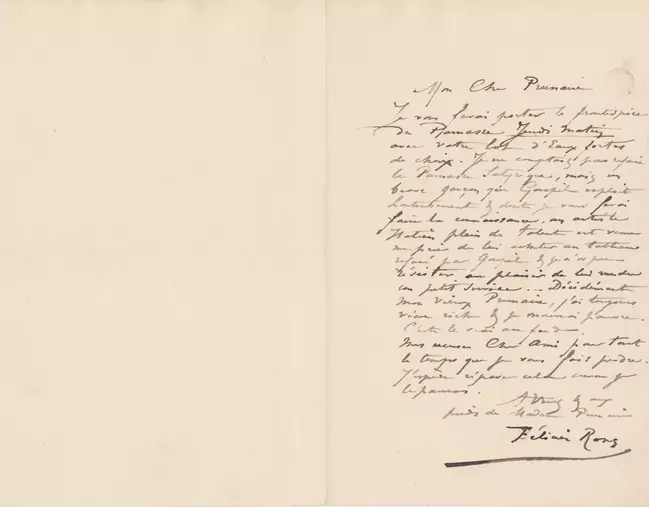 Mon Cher Prunaire
Je vous ferai porter le frontispice
du Parnasse Jeudi matin
avec votre lot d'Eaux fortes
de choix. Je ne comptais pas refaire
le Parnasse Satyrique, mais un
brave garçon que Goupil exploit
& dont je vous ferai
faire la connaissance, un artiste
plein de talent est venu
me prier de lui acheter un tableau
refusé par Goupil & je n'ai pu
résister au plaisir de lui rendre
un petit service... Décidément
mon vieux Prunaire, j'ai toujours
riche & je mourrai pauvre.
C'est le vrai au fond.
Mes excuses Cher Ami pour tout
le temps que je vous fais perdre.
J'espère réparer cela
A vous &
près de Madame Prunaire
Félicien Rops